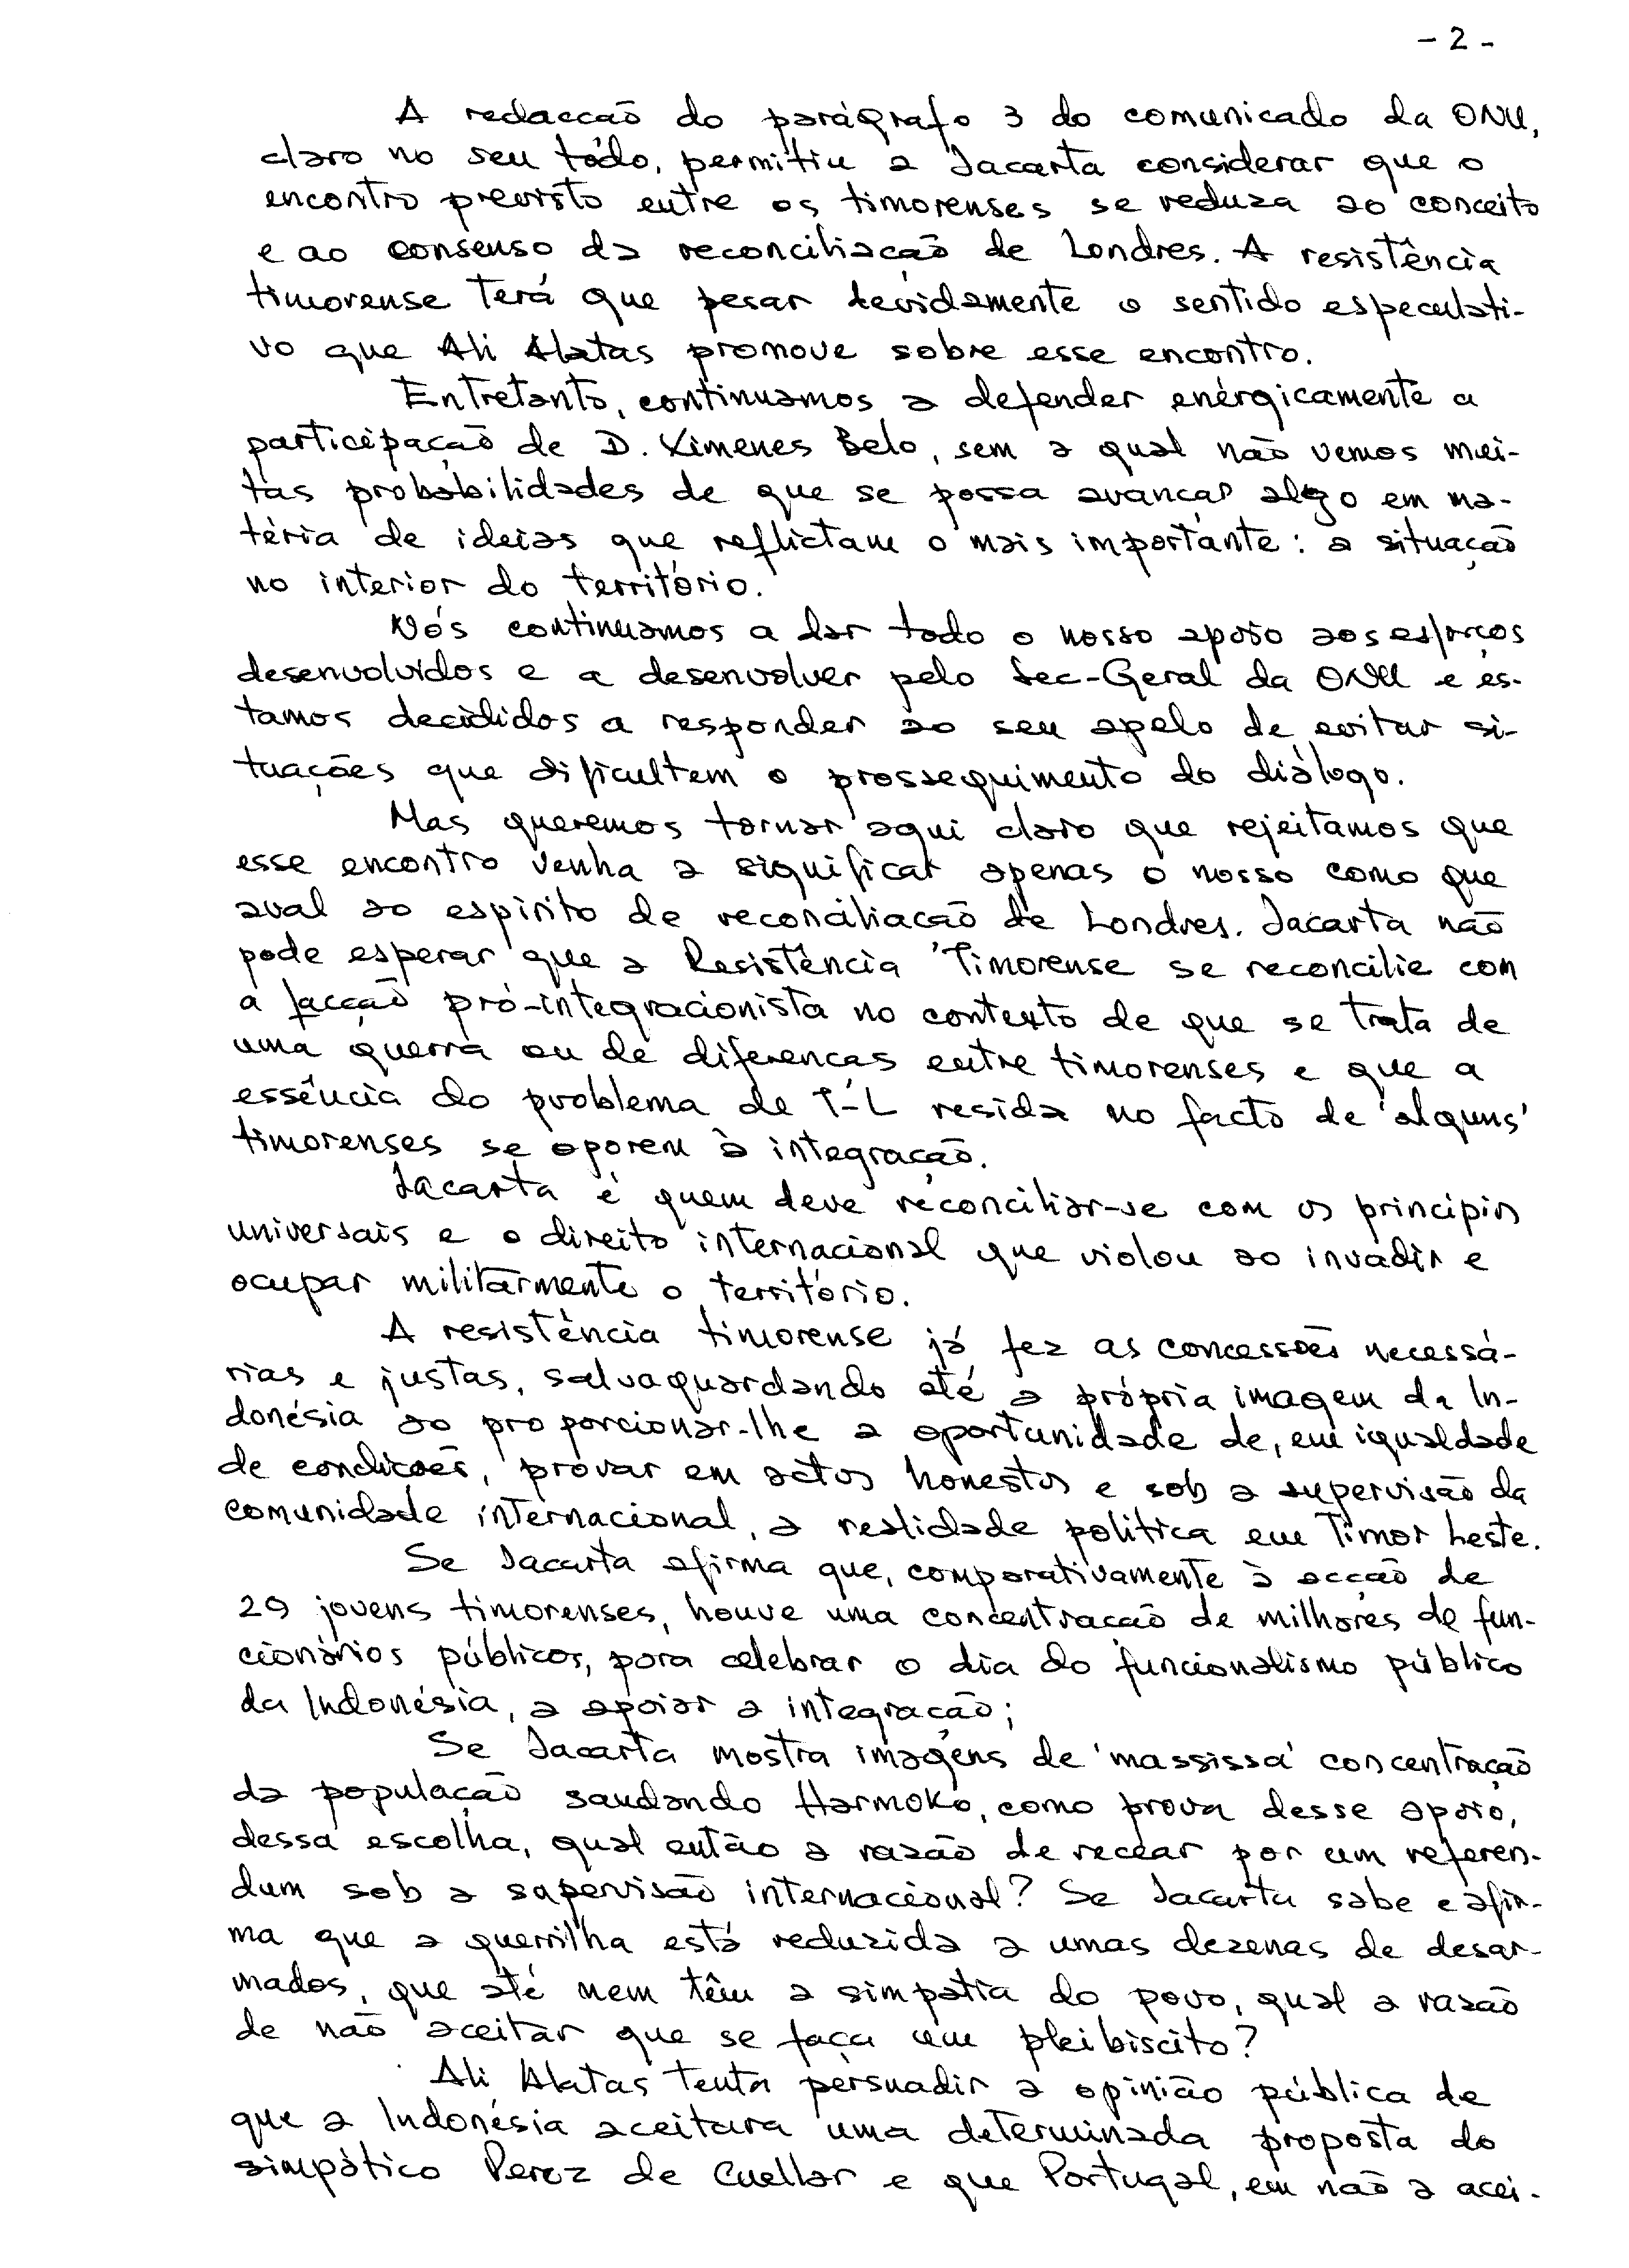 - 2 -
A redacção do parágrafo 3 do comunicado da ONU,
claro no seu todo, permitiu a Jacarta considerar que o
encontro previsto entre os timorenses se reduza ao conceito
e ao consenso da reconciliação de Londres. A resistência
timorense terá que pesar devidamente o sentido especulati-
vo que Ali Alatas promove sobre esse encontro.
Entretanto, continuamos a defender enérgicamente a
participação de D. Ximenes Belo, sem a qual não vemos mui-
tas probabilidades de que se possa avançar algo em ma-
téria de ideias que reflictam o mais importante: a situação
no interior do território.
Nós continuamos a dar todo o nosso apoio aos esforços
desenvolvidos e a desenvolver pelo Sec-Geral da ONU e es-
tamos decididos a responder ao seu apelo de evitar si-
tuações que dificultem o prosseguimento do diálogo.
Mas queremos tornar aqui claro que rejeitamos que
esse encontro venha a significar apenas o nosso como que
aval ao espírito de reconciliação de Londres. Jacarta não
pode esperar que a Resistência Timorense se reconcilie com
a facção pró-integracionista no contexto de que se trata de
uma guerra ou de diferenças entre timorenses e que a
essência do problema de T-L resida no facto de 'alguns'
timorenses se oporem à integração.
Jacarta é quem deve reconciliar-se com os princípios
universais e o direito internacional que violou ao invadir e
ocupar militarmente o território.
A resistência timorense já fez as concessões necessá-
rias e justas, salvaguardando até a própria imagem da In-
donésia ao proporcionar-lhe a oportunidade de, em igualdade
de condições, provar em actos honestos e sob a supervisão da
comunidade internacional, a realidade política em Timor Leste.
Se Jacarta afirma que, comparativamente à acção de
29 jovens timorenses, houve uma concentração de milhares de fun-
cionários públicos, para celebrar o dia do funcionalismo público
da Indonésia, a apoiar a integração;
Se Jacarta mostra imagens de 'massissa' concentração
da população saudando Harmoko, como prova desse apoio,
dessa escolha, qual então a razão de recear por um referen-
dum sob a supervisão internacional? Se Jacarta sabe e afir-
ma que a guerrilha está reduzida a umas dezenas de desar-
mados, que até nem têm a simpatia do povo, qual a razão
de não aceitar que se faça um pleibiscito?
Ali Alatas tenta persuadir a opinião pública de
que a Indonésia aceitara uma determinada proposta do
simpático Perez de Cuellar e que Portugal, em não a acei-